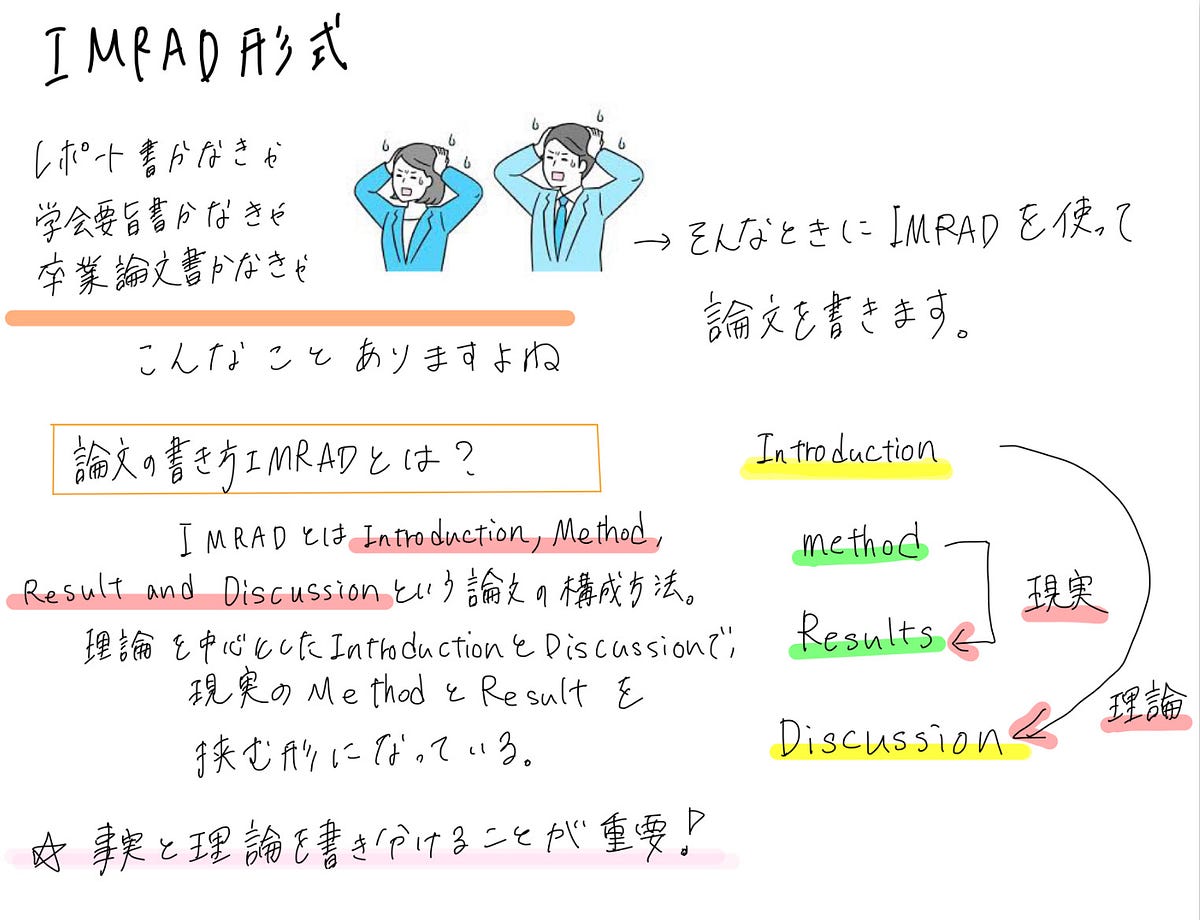 IMRAD形式
レポート書かなきゃ
学会要旨書かなきゃ
卒業論文書かなきゃ
こんなことありますよね
→そんなときにIMRADを使って
論文を書きます。
論文の書き方IMRADとは？
IMRADとはIntroduction, Method,
Result and Discussionという論文の構成方法。
理論を中心としたIntroductionとDiscussionで,
現実のMethodとResultを
挟む形になっている。
☆事実と理論を書き分けることが重要！
Introduction
method
現実
Results
理論
Discussion